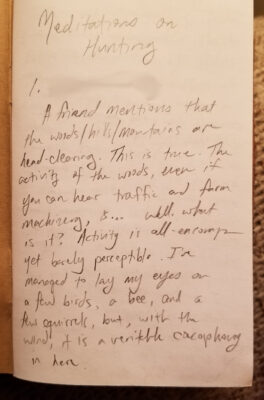 Meditations on
Hunting
1.
A friend mentions that
the woods/hills/mountains are
head-clearing. This is true. The
activity of the woods, even if
you can hear traffic and farm
machinery, is... well. what
is it? Activity is all-encomp
yet barely perceptible. I've
managed to lay my eyes on
a few birds, a bee, and a
few squirrels, but, with the
wind, it is a veritable cacophony
in here.